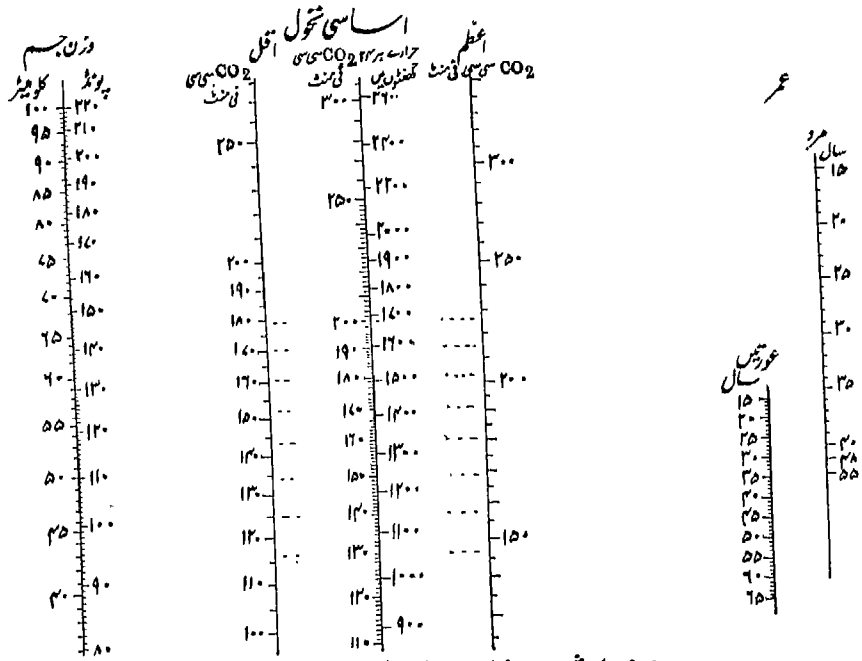 اساسی تحول
وزن جسم
کلوگرام
پونڈ
۱۰۰
۹۵
۹۰
۸۵
۸۰
۷۵
۷۰
۶۵
۶۰
۵۵
۵۰
۴۵
۴۰
۲۲۰
۲۱۰
۲۰۰
۱۹۰
۱۸۰
۱۷۰
۱۶۰
۱۵۰
۱۴۰
۱۳۰
۱۲۰
۱۱۰
۱۰۰
۹۰
۸۰
اقل
CO2 سی سی
فی منٹ
۲۵۰
۲۰۰
۱۹۰
۱۸۰
۱۷۰
۱۶۰
۱۵۰
۱۴۰
۱۳۰
۱۲۰
۱۱۰
۱۰۰
CO2 سی سی
فی منٹ
۳۰۰
۲۵۰
۲۰۰
۱۹۰
۱۸۰
۱۷۰
۱۶۰
۱۵۰
۱۴۰
۱۳۰
۱۲۰
۱۱۰
حرارے ہر ۲۴
گھنٹوں میں
۲۶۰۰
۲۴۰۰
۲۲۰۰
۲۰۰۰
۱۹۰۰
۱۸۰۰
۱۷۰۰
۱۶۰۰
۱۵۰۰
۱۴۰۰
۱۳۰۰
۱۲۰۰
۱۱۰۰
۱۰۰۰
۹۰۰
اعظم
CO2 سی سی فی منٹ
۳۰۰
۲۵۰
۲۰۰
۱۵۰
عمر
مرد
سال
۱۵
۲۰
۲۵
۳۰
۳۵
۴۰
۴۸
۵۵
عورتیں
سال
۱۵
۲۰
۲۵
۳۰
۳۵
۴۰
۴۵
۵۰
۵۵
۶۰
۶۵